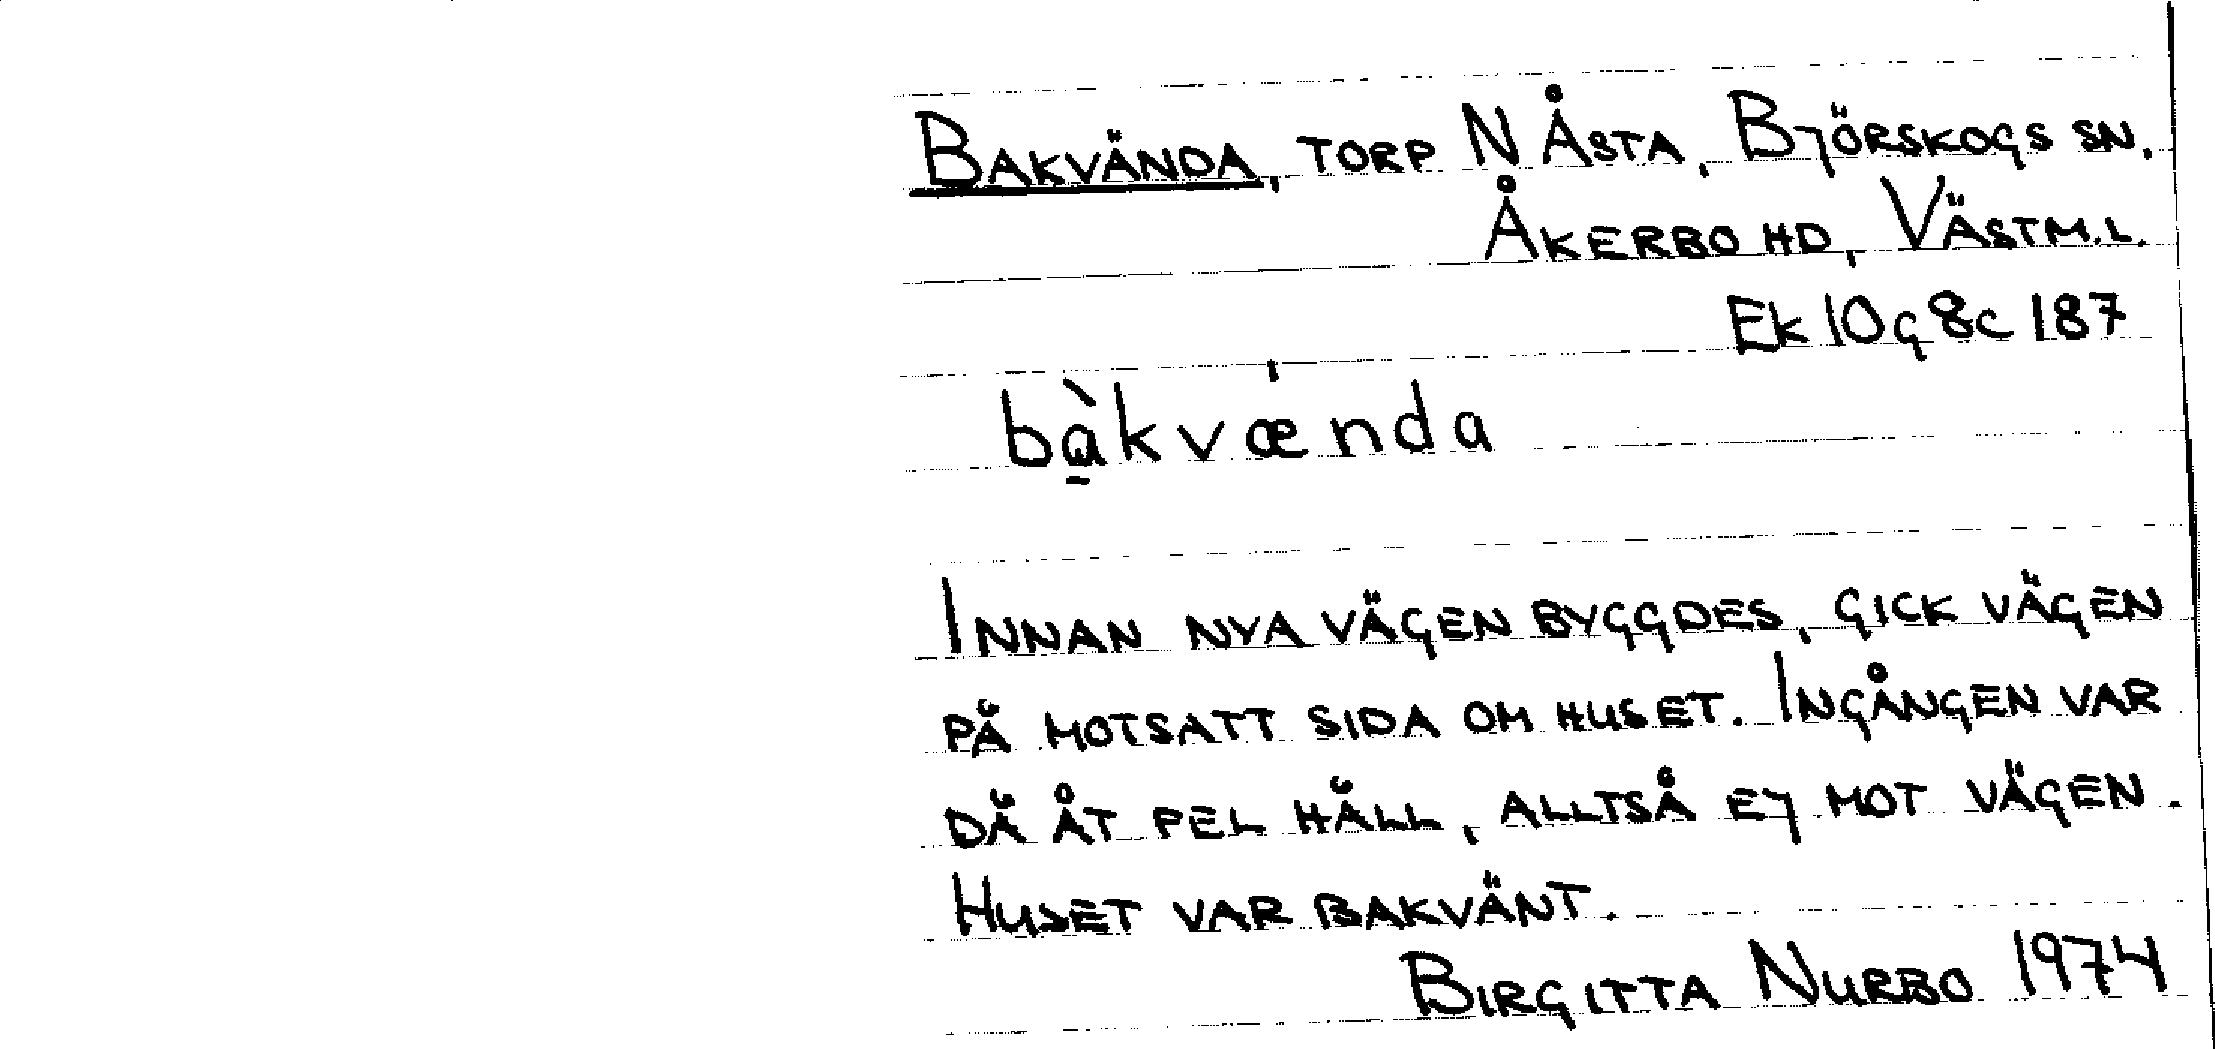 BAKVÄNDA, TORP N ÅSTA, BJÖRSKOGS SN,
ÅKERBO HD, VÄSTM.L.
Ek 10g 8c 187
bà̱kvæ̍nda
INNAN NYA VÄGEN BYGGDES, GICK VÄGEN
PÅ MOTSATT SIDA OM HUSET. INGÅNGEN VAR
DÅ ÅT FEL HÅLL, ALLTSÅ EJ MOT VÄGEN.
HUSET VAR BAKVÄNT.
BIRGITTA NURBO 1974